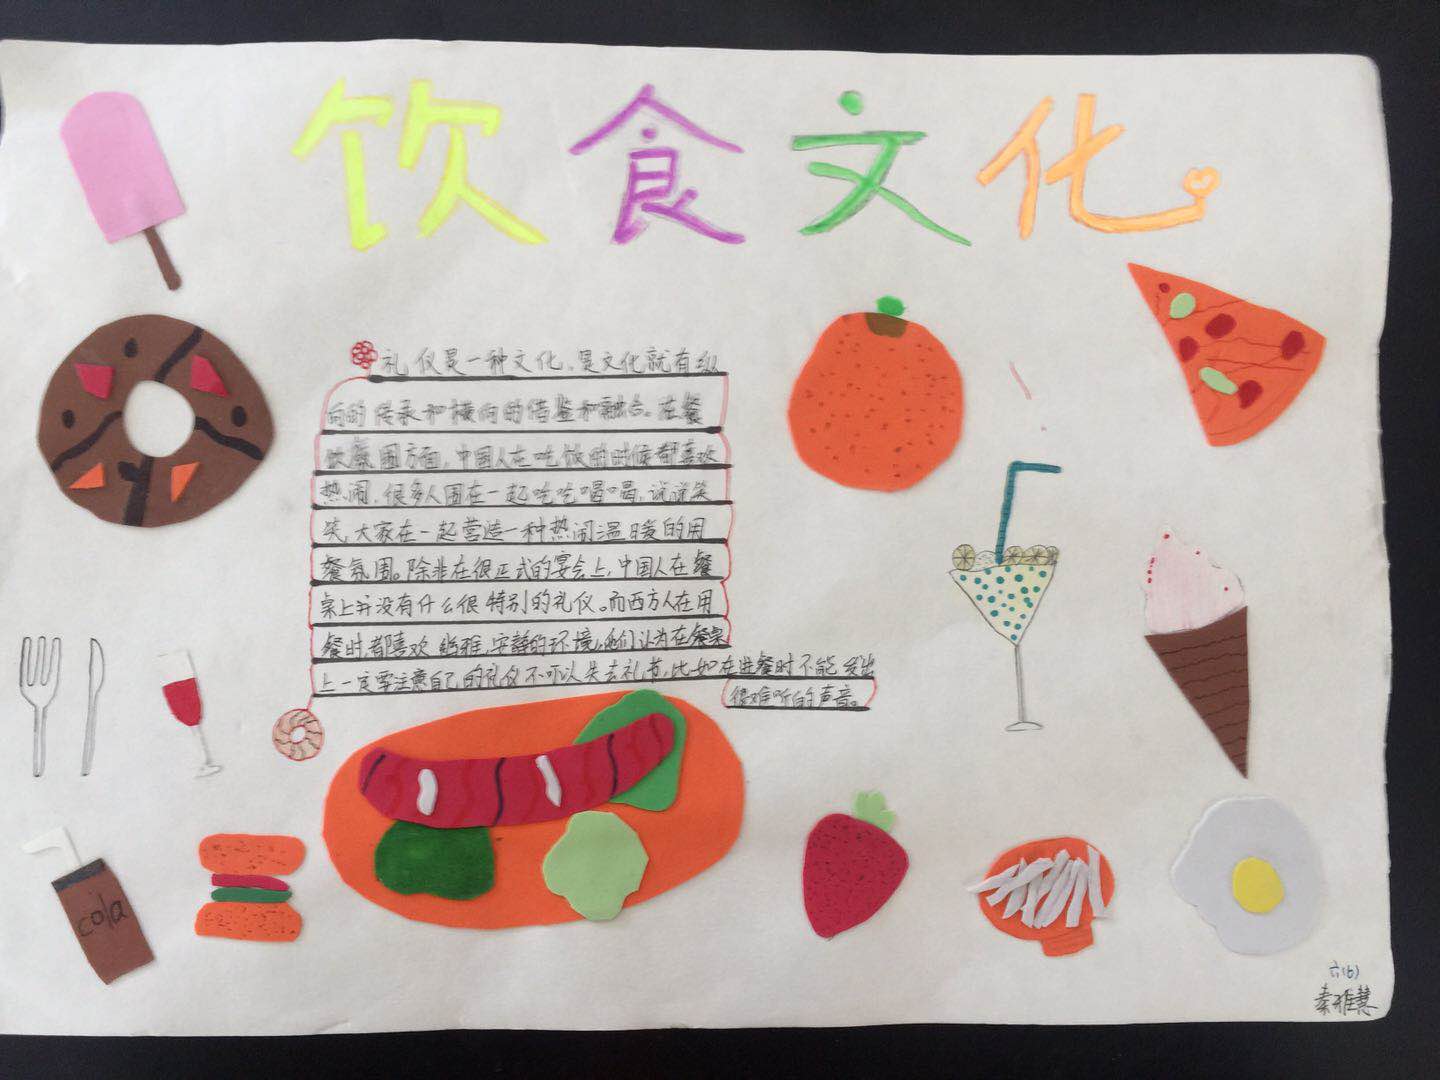 饮食文化
礼仪是一种文化，是文化就有纵
向的传承和横向的借鉴和融合。在餐
饮氛围方面，中国人在吃饭的时候都喜欢
热闹，很多人围在一起吃吃喝喝，说说笑
笑，大家在一起营造一种热闹温暖的用
餐氛围。除非在很正式的宴会上，中国人在餐
桌上并没有什么很特别的礼仪。而西方人在用
餐时，都喜欢幽雅，安静的环境，他们认为在餐桌
上一定要注意自己的礼仪不可以失去礼节，比如在进餐时不能发出
很难听的声音。
cola
六(6)
雅慧